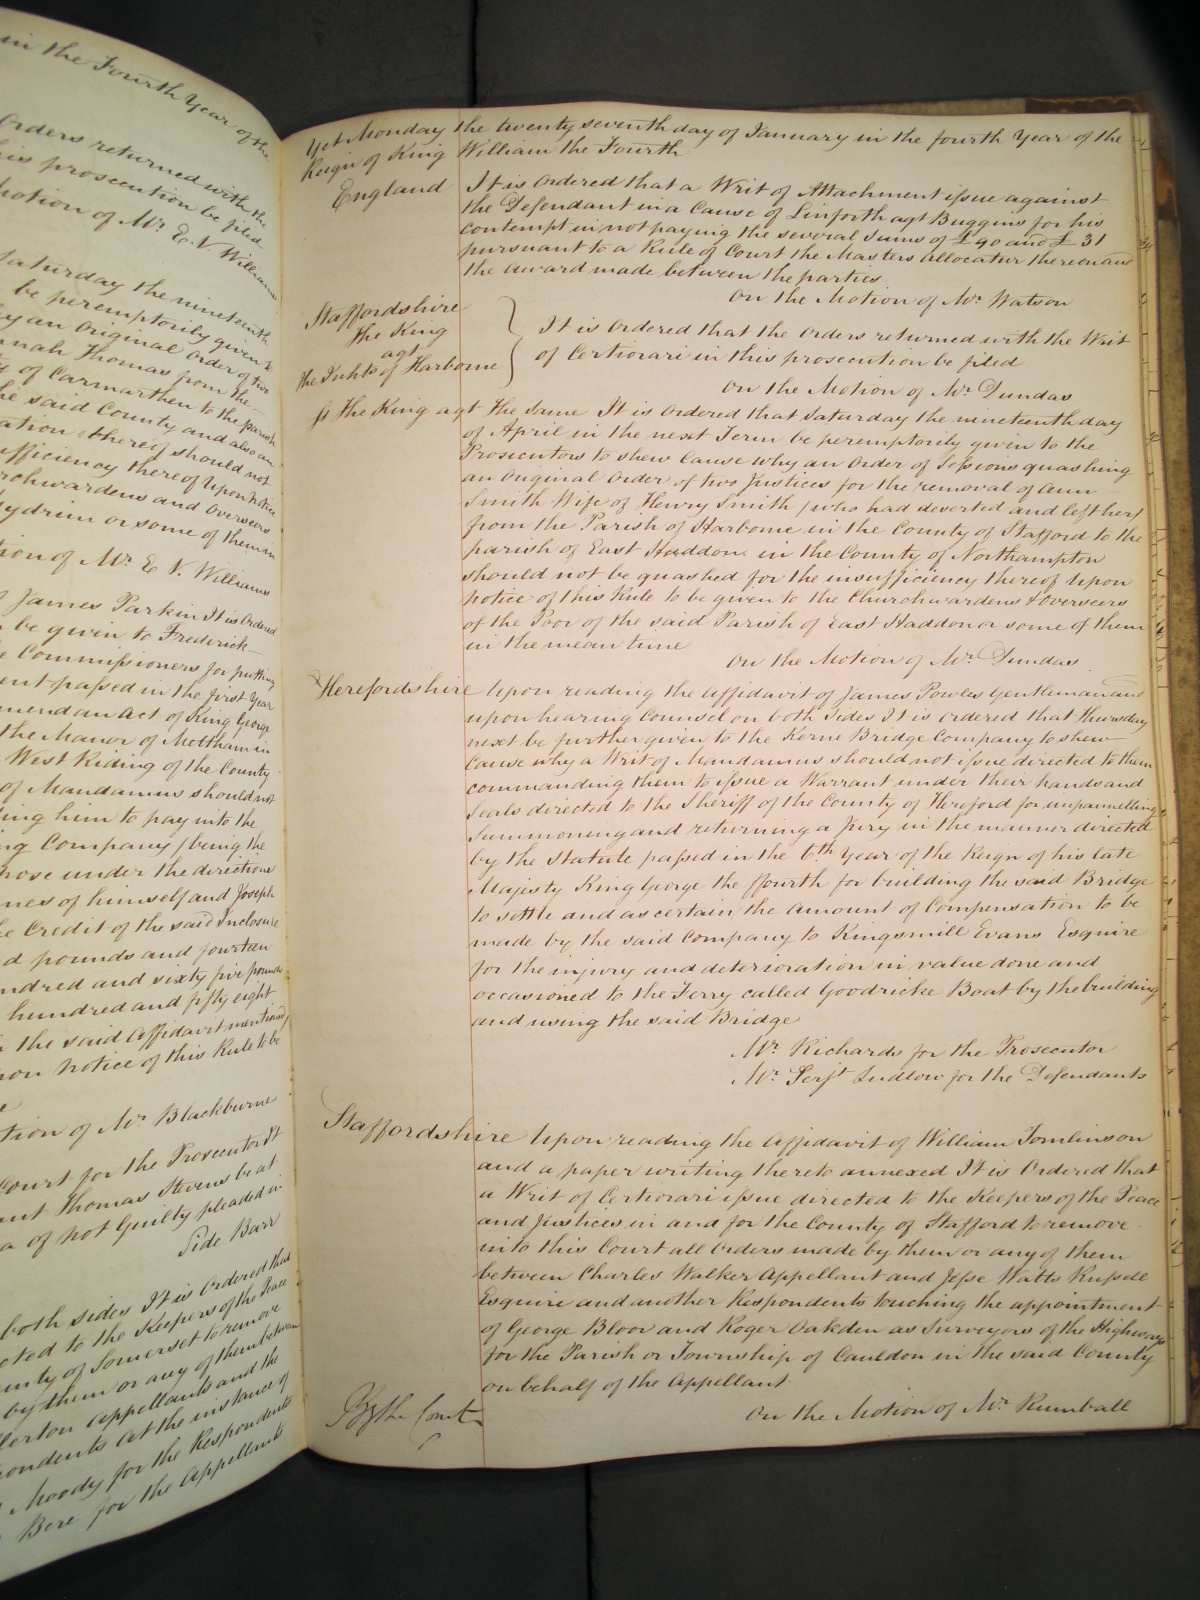 in the Fourth Year of the
Orders returned with the
his prosecution be filed
Motion of Mr. E. V. Williams
Saturday the nineteenth
be peremptorily given to
why an Original Order of two
Hannah Thomas from the
of Carmarthen to the parish
the said County and also an
thereof should not
insufficiency thereof Upon Notice
Churchwardens and Overseers
or some of them in
Motion of Mr. E V. Williams
James Parkin It is Ordered
be given to Frederick
Commissioners for putting
passed in the first Year
amend an Act of King George
the Manor of Mottham in
West Riding of the County
of Mandamus should not
him to pay into the
Company (being the
those under the directions
names of himself and Joseph
the Credit of the said Inclosure
pounds and fourteen
hundred and sixty five pounds
hundred and fifty eight
in the said Affidavit mentioned
upon Notice of this Rule to be
Motion of Mr. Blackburne
Court for the Prosecutor It
Thomas Stevens be at
plea of Not Guilty pleaded in
Side Barr
both sides It is Ordered that
directed to the Keepers of the Peace
County of Somerset to remove
by them or any of them between
Appellants and the
Respondents at the instance of
Moody for the Respondents
Bere for the Appellants
Yet Monday the twenty seventh day of January in the fourth Year of the
Reign of King William the Fourth
England It is Ordered that a Writ of Attachment issue against
the Defendant in a Cause of Linforth agt Buggins for his
contempt in not paying the several Sums of £90 and £31
pursuant to a Rule of Court the Masters allocatur thereon and
the Award made between the parties
On the Motion of Mr. Watson
Staffordshire
the King
agt
the Inhts of Harborne
It is Ordered that the Orders returned with the Writ
of Certiorari in this prosecution be filed
On the Motion of Mr. Dundas
St the King agt the Same It is Ordered that Saturday the nineteenth day
of April in the next Term be peremptorily given to the
Prosecutors to shew Cause why an Order of Sessions quashing
an Original Order of two Justices for the removal of Ann
Smith Wife of Henry Smith (who had deserted and left her)
from the Parish of Harborne in the County of Stafford to the
parish of East Haddon in the County of Northampton
should not be quashed for the insufficiency thereof Upon
notice of this Rule to be given to the Churchwardens & Overseers
of the Poor of the said Parish of East Haddon or some of them
in the mean time
On the Motion of Mr. Dundas
Herefordshire Upon reading the Affidavit of James Powles Gentleman and
upon hearing Counsel on both sides It is ordered that Thursday
next be further given to the Kerne Bridge Company to shew
Cause why a Writ of Mandamus should not issue directed to them
commanding them to issue a Warrant under their hands and
Seals directed to the Sheriff of the County of Hereford for impannelling
Summoning and returning a Jury in the manner directed
by the Statute passed in the 6th Year of the Reign of his late
Majesty King George the ffourth for building the said Bridge
to settle and ascertain the Amount of Compensation to be
made by the said Company to Kingsmill Evans Esquire
for the injury and deterioration in value done and
occasioned to the Ferry called Goodricke Boat by the building
and using the said Bridge
Mr. Richards for the Prosecutor
Mr. Serjt. Ludlow for the Defendants
Staffordshire Upon reading the Affidavit of William Tomlinson
and a paper writing thereto annexed It is Ordered that
a Writ of Certiorari issue directed to the Keepers of the Peace
and Justices in and for the County of Stafford to remove
into this Court all Orders made by them or any of them
between Charles Walker Appellant and Jesse Watts Russell
Esquire and another Respondents touching the appointment
of George Bloor and Roger Oakden as Surveyors of the Highways
for the Parish or Township of Cauldon in the said County
on behalf of the Appellant
On the Motion of Mr. Rumball
By the Court